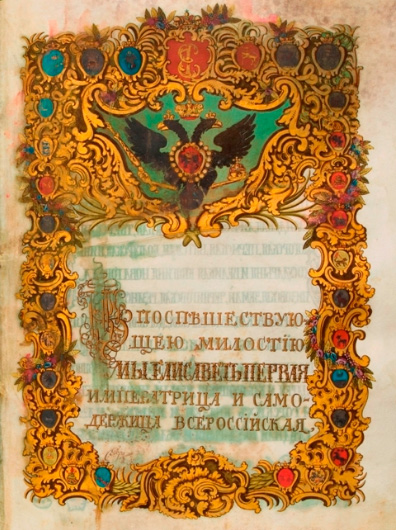 ПОСПѢШЕСТВУЮ-
ЩЕЮ МИЛОСТІЮ
МЫ ЕЛИСАВЕТЪ ПЕРВАЯ
ИМПЕРАТРИЦА И САМО-
ДЕРЖИЦА ВСЕРОССІЙСКАЯ